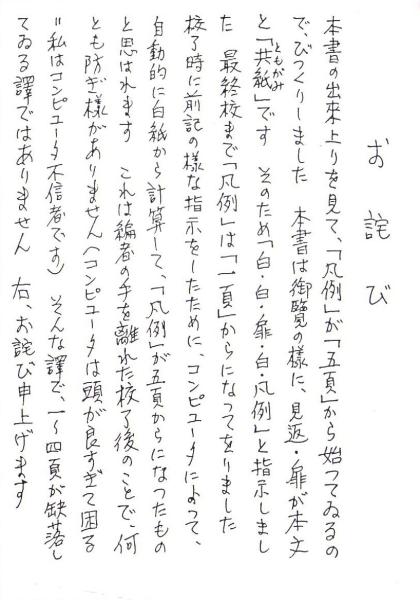 お詫び
本書の出來上りを見て、「凡例」が「五頁」から始つてゐるの
で、びつくりしました　本書は御覽の樣に、見返・扉が本文
と「共紙」です　そのため「白・白・扉・白・凡例」と指示しまし
ともがみ
た　最終校まで「凡例」は「一頁」からになつてをりました
校了時に前記の樣な指示をしたために、コンピュータによつて、
自動的に白紙から計算して、「凡例」が五頁からになつたもの
と思はれます　これは編者の手を離れた校了後のことで、何
とも防ぎ樣がありません（コンピュータは頭が良すぎて困る
＝私はコンピュータ不信者です）　そんな譯で、一〜四頁が缺落し
てゐる譯ではありません　右、お詫び申上げます